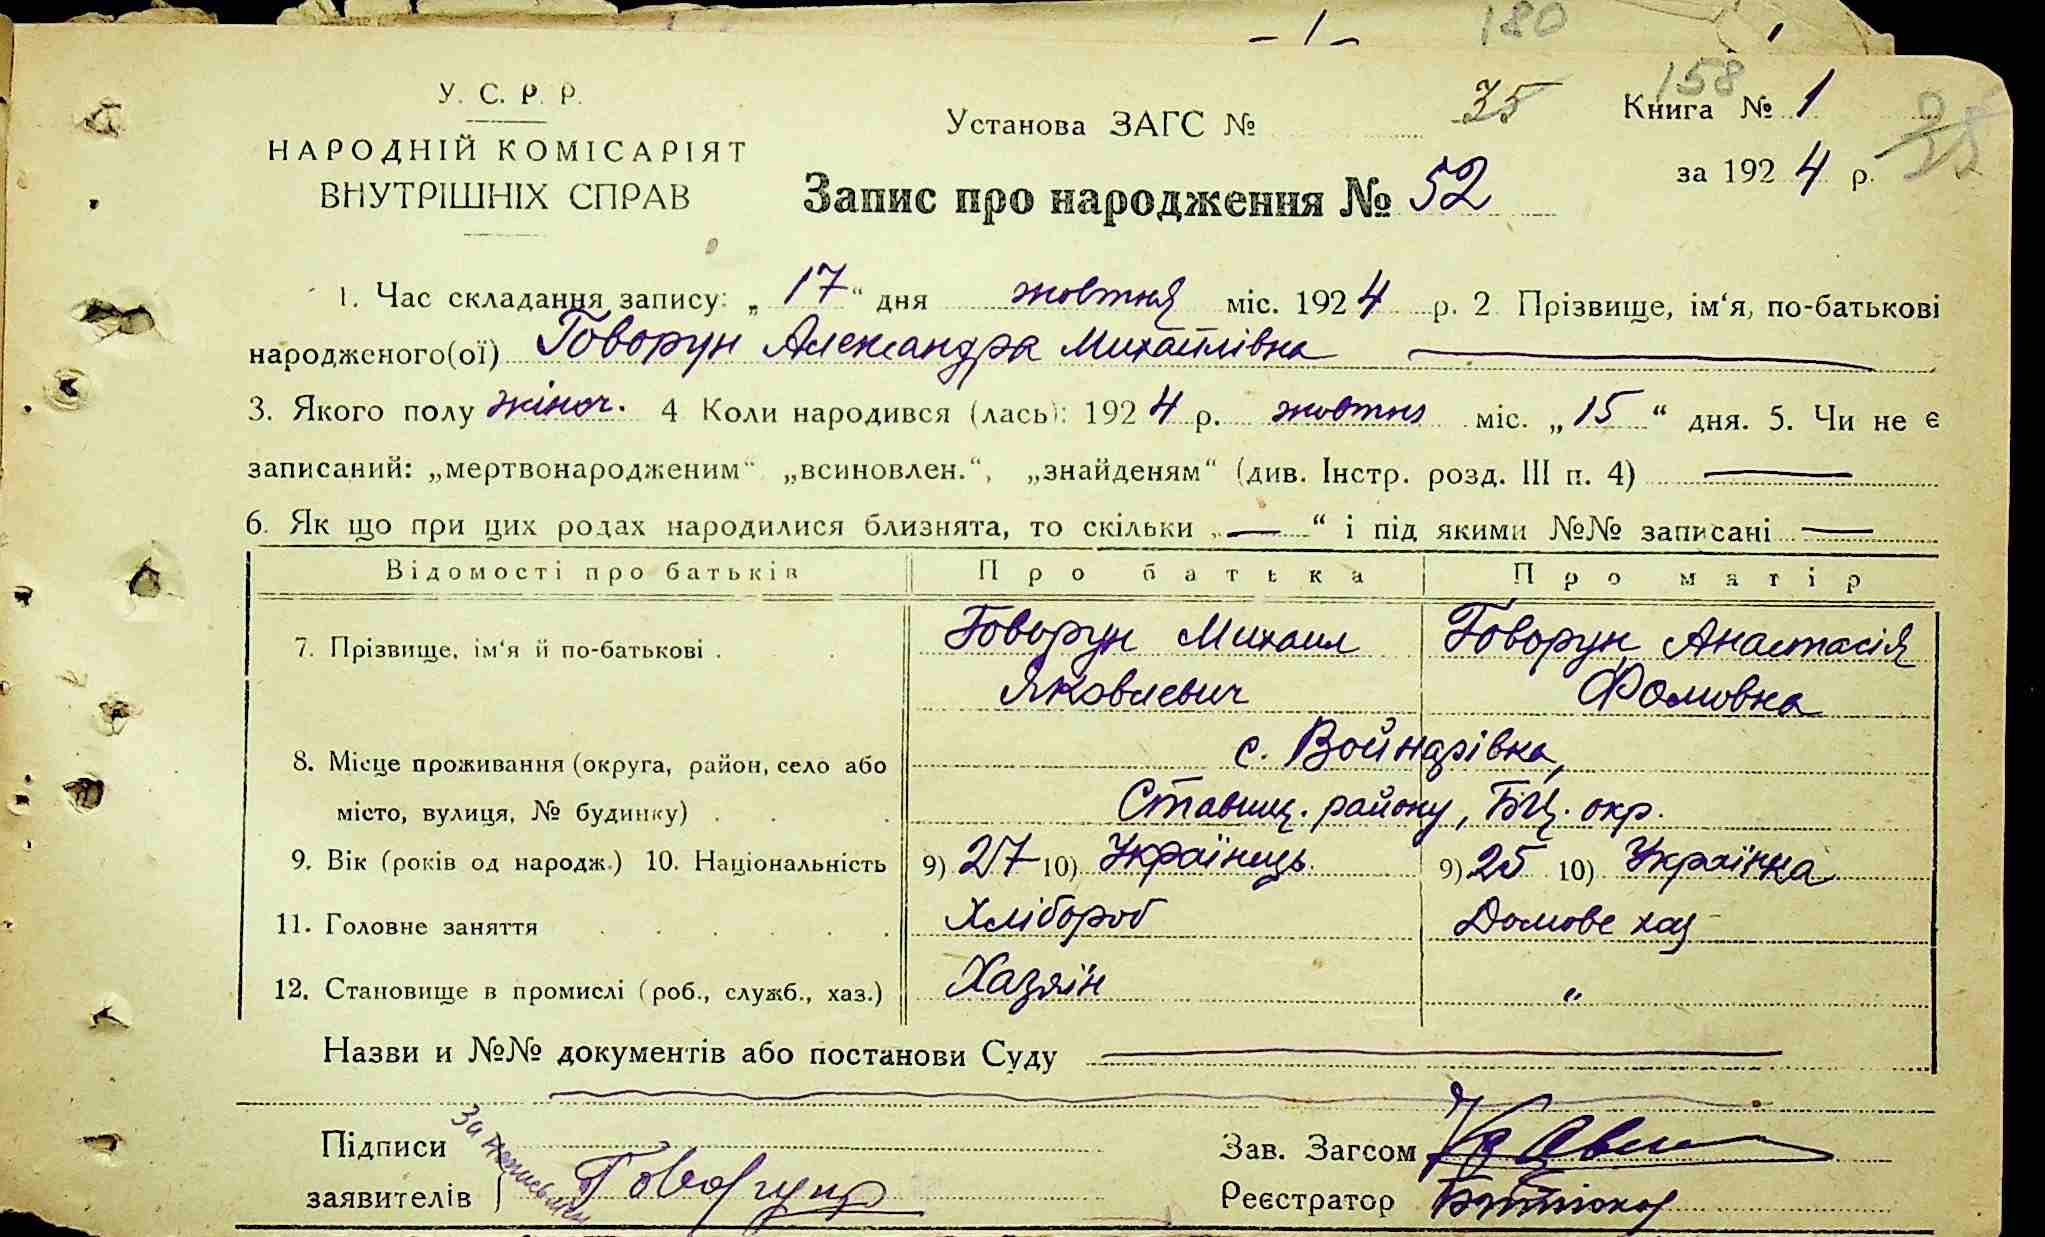 180
158
У. С. Р. Р.
НАРОДНІЙ КОМІСАРІЯТ
ВНУТРІШНІХ СПРАВ
Установа ЗАГС № 35
Книга № 1
за 1924 р.
Запис про народження № 52
1. Час складання запису: „17“ дня жовтня міс. 1924 р. 2. Прізвище, ім‘я, по-батькові
народженого(ої) Говорун Александра Михайлівна
3. Якого полу жіноч. 4 Коли народився (лась): 1924 р. жовтня міс. „15“ дня. 5. Чи не є
записаний: „мертвонародженим“ „всиновлен.“, „знайденям“ (див. Інстр. розд. III п. 4) —
6. Як що при цих родах народилися близнята, то скільки „—“ і під якими №№ записані —
Відомості про батьків Про батька Про матір
7. Прізвище, ім‘я й по-батькові . Говорун Михаил Говорун Анастасія
Яковлевич Фомовна
8. Місце проживання (округа, район, село або с. Войнарівка,
місто, вулиця, № будинку) . Ставищ. району, БЦ. окр.
9. Вік (років од народж.) 10. Національність 9) 27 10) Українець 9) 25 10) Українка
11. Головне заняття Хлібороб Домове хаз
12. Становище в промислі (роб., служб., хаз.) Хазяїн „
Назви и №№ документів або постанови Суду
Підписи
заявителів Говорун
Зав. Загсом
Реєстратор